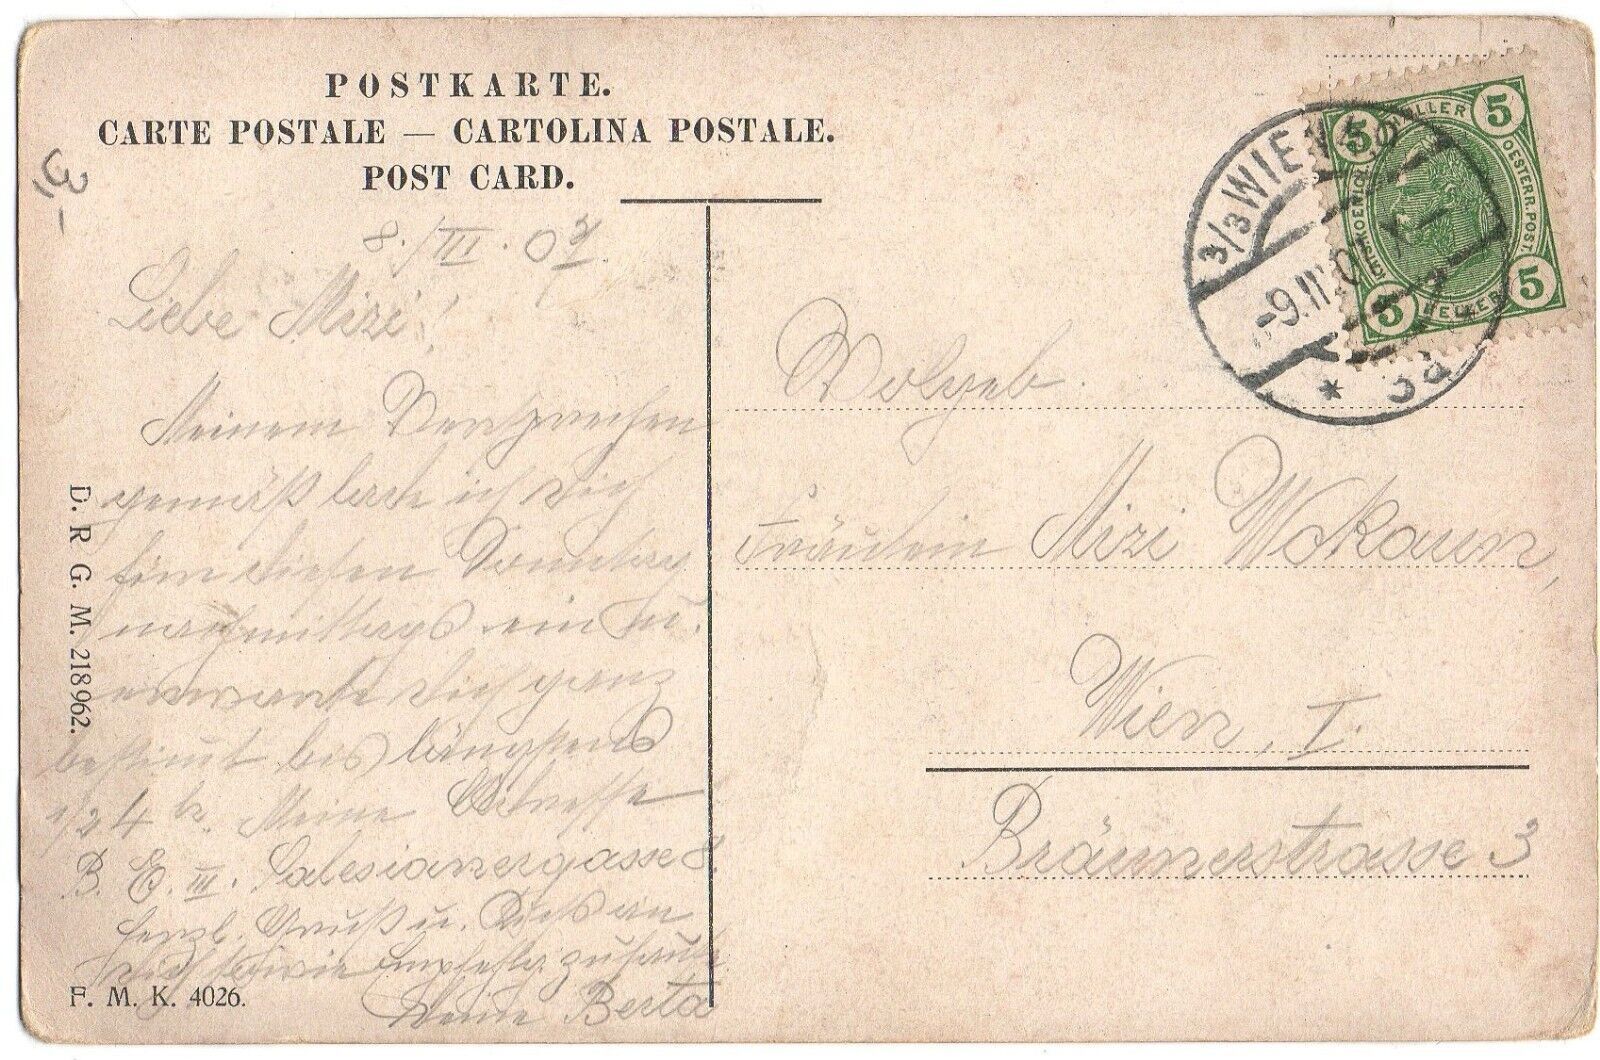 POSTKARTE.
CARTE POSTALE — CARTOLINA POSTALE.
POST CARD.
3,-
8./III. 07
Liebe Mizi!
Meinem Versprechen
gemäß lade ich Dich
für diesen Sonntag
nachmittags ein u.
erwarte Dich ganz
bestimt bis längstens
1/2 4 h. Meine Adresse
B. E. III. Salesianergasse 8.
Herzl. Gruß u. Kuß an
Dich sowie Empfehlg. zuhause
Deine Berta
D. R. G. M. 218962.
F. M. K. 4026.
Wolgeb.
Fräulein Mizi Wokaun,
Wien, I.
Bräunerstrasse 3
3/3 WIEN
-9.III.07
* 3a
5 HELLER 5
OESTERR. POST.
5 HELLER 5